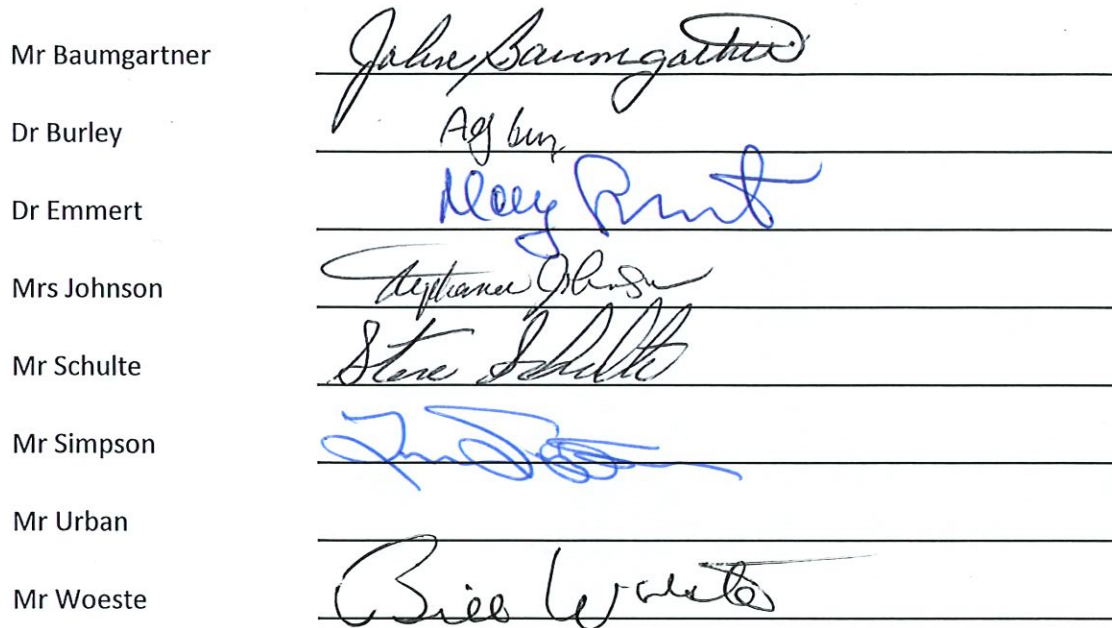 Mr Baumgartner John Baumgartner
Dr Burley
Dr Emmert Mary
Mrs Johnson Stephanie Johnson
Mr Schulte Steve Schulte
Mr Simpson
Mr Urban
Mr Woeste Bill Woeste